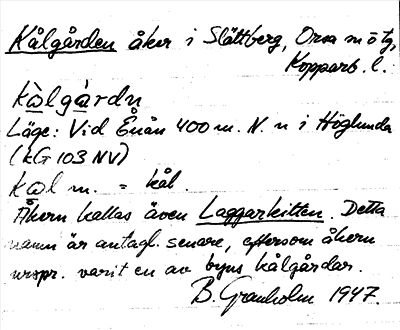 Kålgården åker i Slättberg, Orsa sn ö tg,
Kopparb. l.
kålgårdn
Läge: Vid Enån 400 m. N. n i Höglunda
(kG 103 NV)
kål m. = kål.
Åkern kallas även Laggarkitten. Detta
namn är antagl. senare, eftersom åkern
urspr. varit en av byns kålgårdar.
B. Granholm 1947.